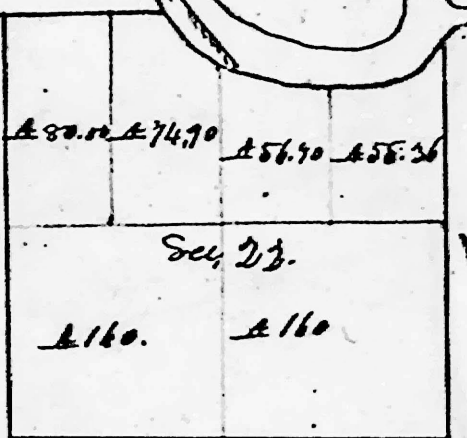 A 80.00 A 74,90 A 56.90 A 55.36
Sec, 22.
A 160. A 160